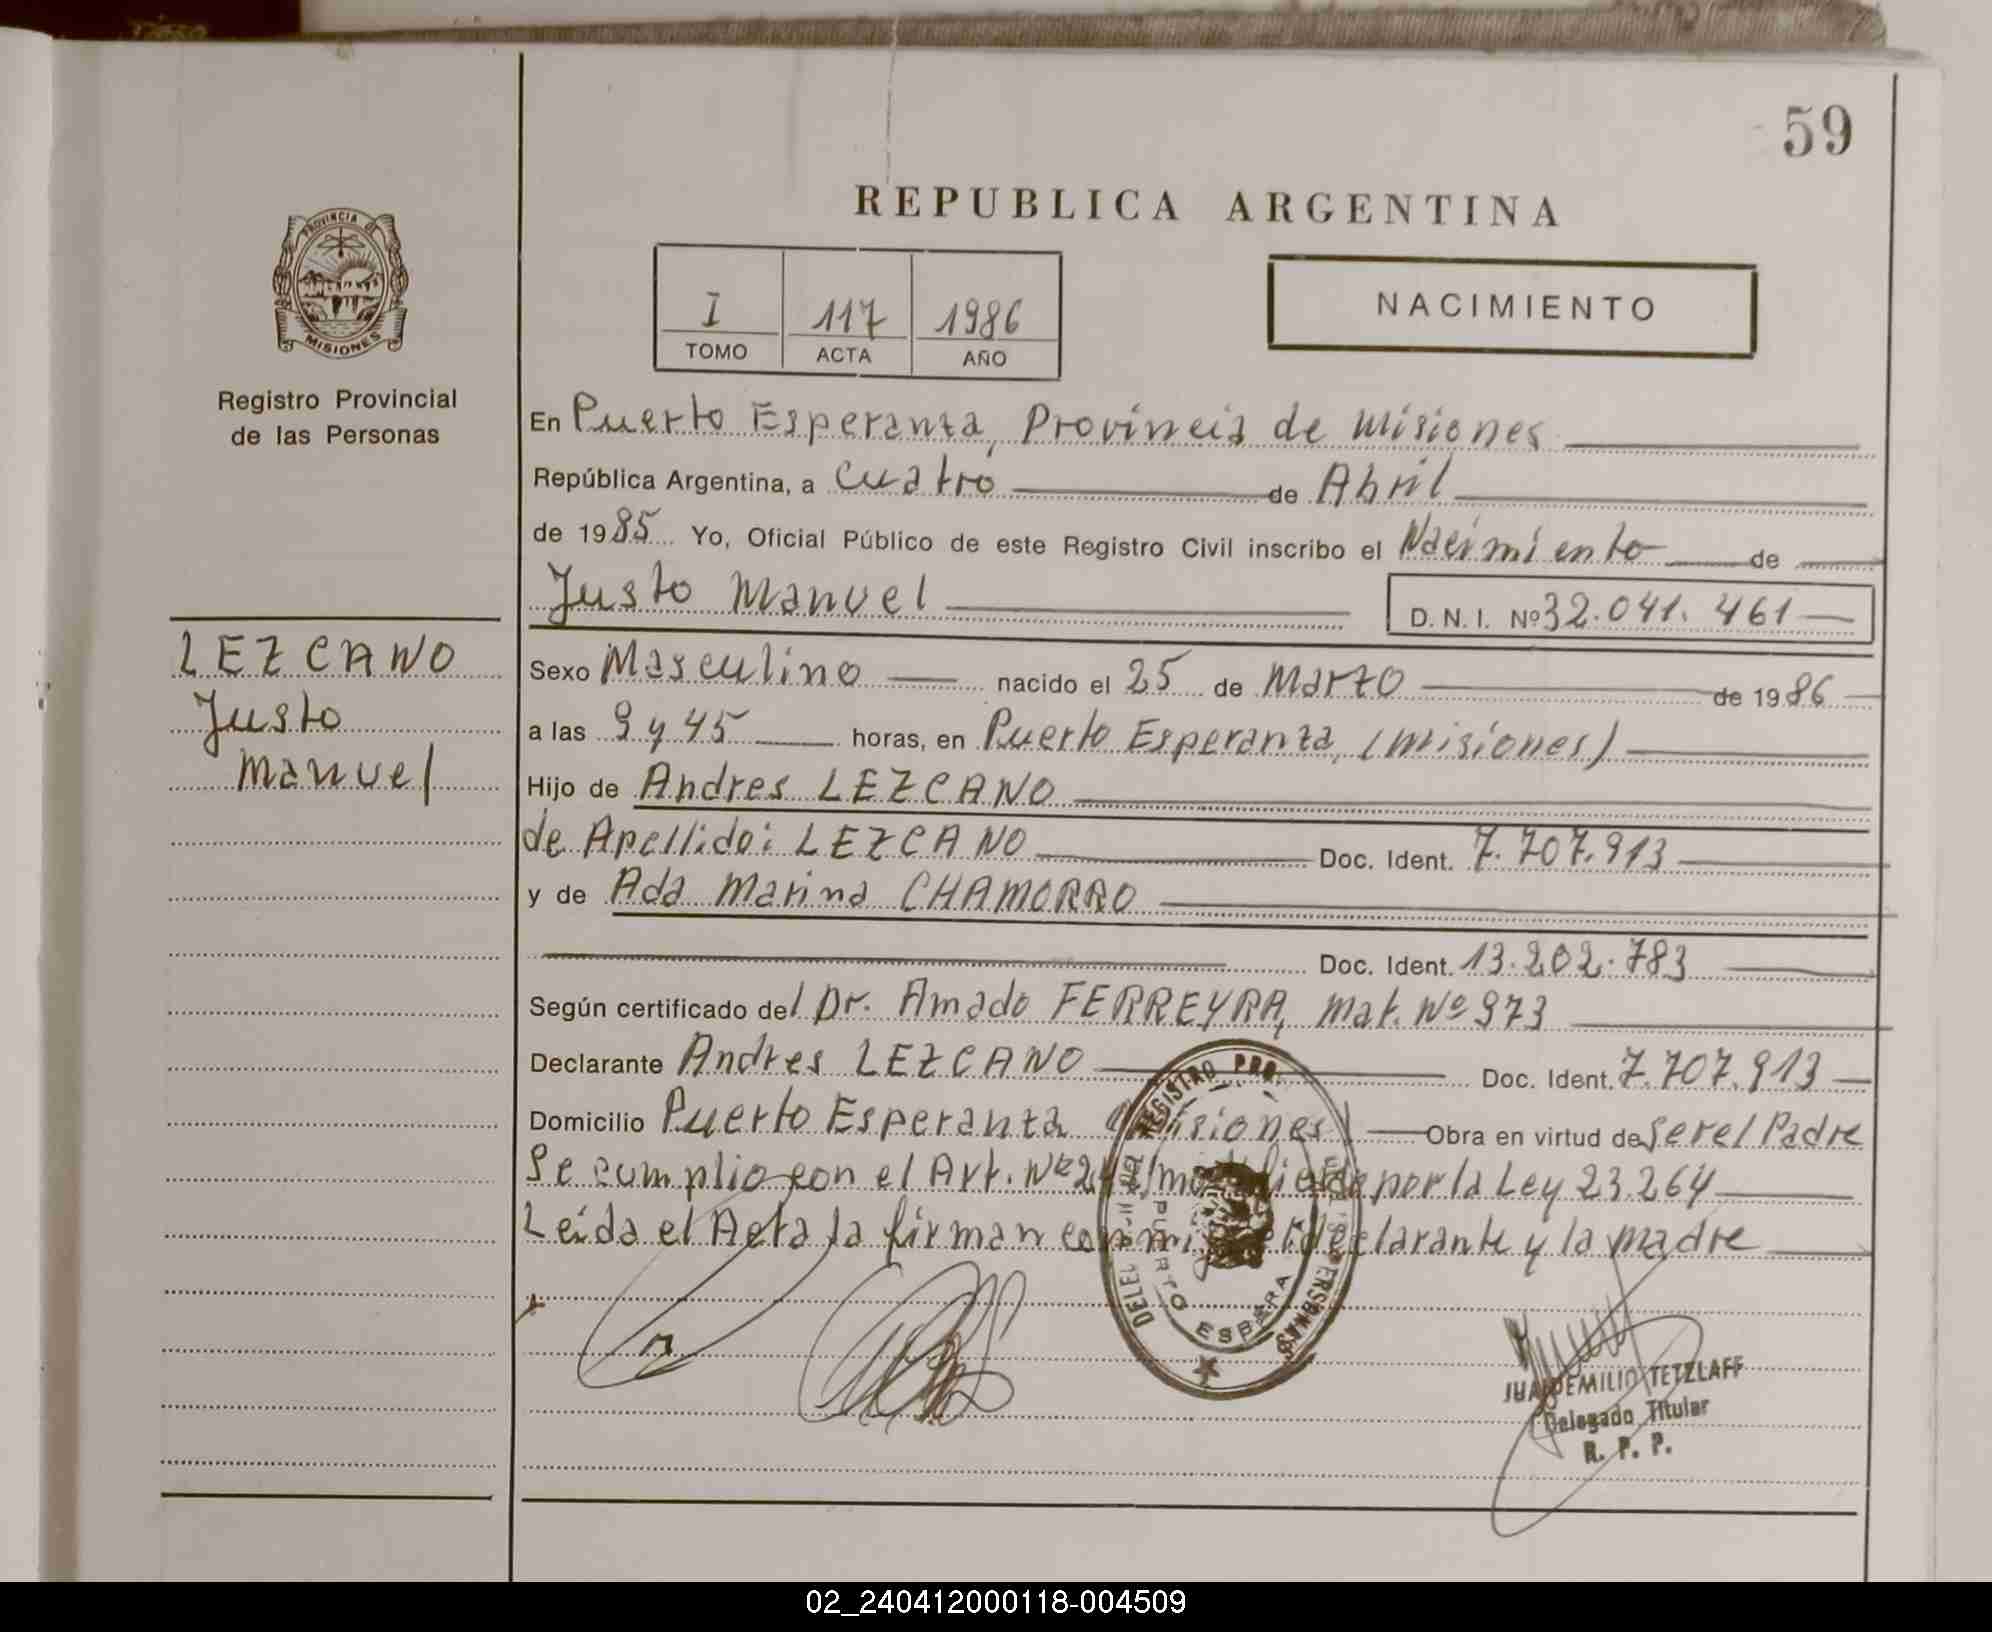 59
REPUBLICA ARGENTINA
PROVINCIA DE
MISIONES
Registro Provincial
de las Personas
I 117 1986
TOMO ACTA AÑO
NACIMIENTO
En Puerto Esperanza, Provincia de Misiones
República Argentina, a cuatro de Abril
de 1985 Yo, Oficial Público de este Registro Civil inscribo el Nacimiento de
Justo Manuel D. N. I. Nº 32.041.461
LEZCANO
Justo
Manuel
Sexo Masculino nacido el 25 de Marzo de 1986
a las 9 y 45 horas, en Puerto Esperanza, (Misiones)
Hijo de Andres LEZCANO
de Apellido: LEZCANO Doc. Ident. 7.707.913
y de Ada Marina CHAMORRO
Doc. Ident. 13.202.783
Según certificado del Dr. Amado FERREYRA, Mat. Nº 973
Declarante Andres LEZCANO Doc. Ident. 7.707.913
Domicilio Puerto Esperanza (Misiones) Obra en virtud de Ser el Padre
Se cumplio con el Art. Nº por la Ley 23.264
Leida el Acta la firman declarante y la madre
REGISTRO PRO. DE LAS PERSONAS
PUERTO ESPERA
JUAN EMILIO TETZLAFF
Delegado Titular
R. P. P.
02_240412000118-004509